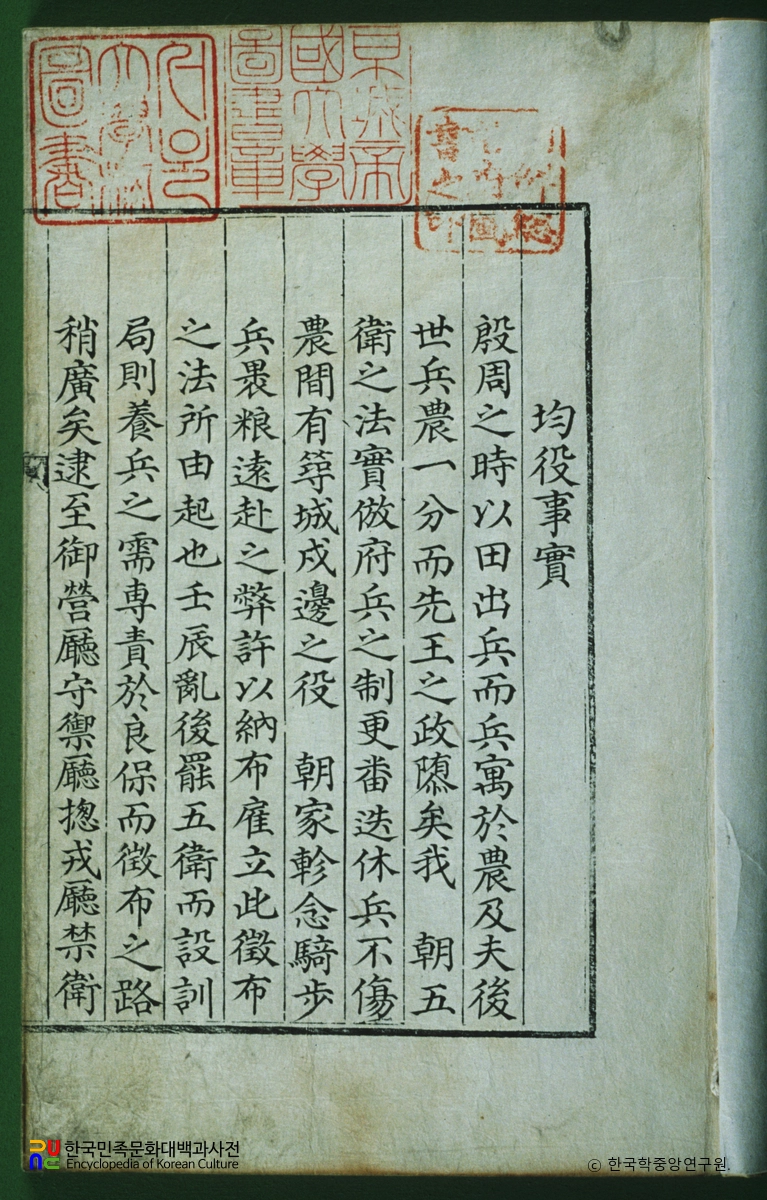 서울
大學校
圖書
京城帝
國大學
圖書章
書之印
均役事實
殷周之時以田出兵而兵寓於農及夫後
世兵農一分而先王之政隳矣我 朝五
衛之法實倣府兵之制更畨迭休兵不傷
農間有築城戍邊之役 朝家軫念騎步
兵褁粮遠赴之弊許以納布雇立此徵布
之法所由起也壬辰亂後罷五衛而設訓
局則養兵之需専責於良保而徵布之路
稍廣矣逮至御營廳守禦廳摠戎廳禁衛
한국민족문화대백과사전
Encyclopedia of Korean Culture
© 한국학중앙연구원.